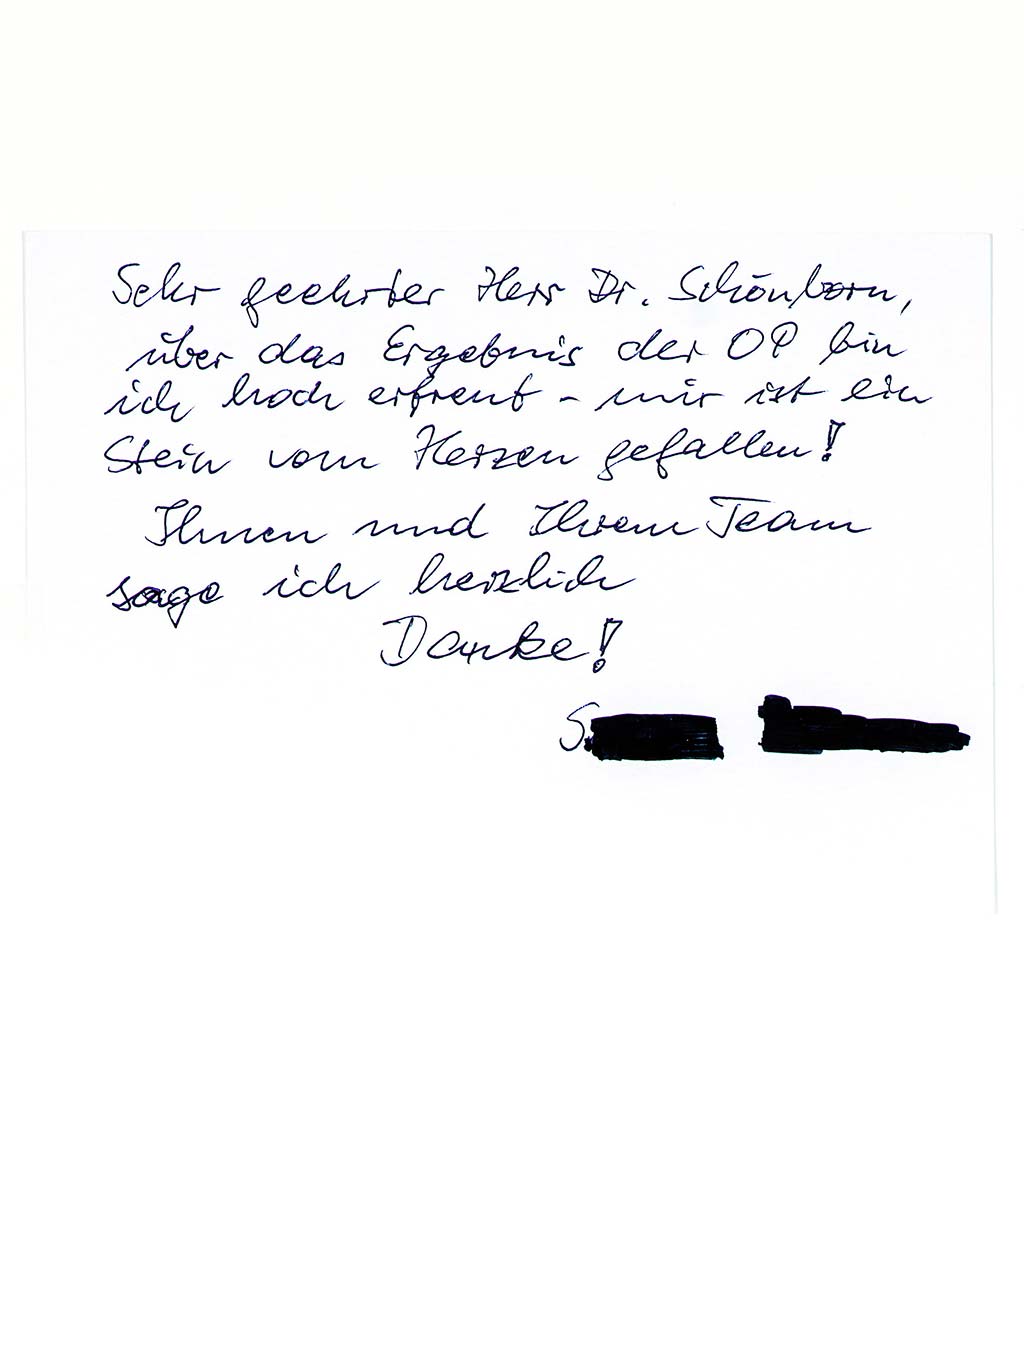 Sehr geehrter Herr Dr. Schönborn,
über das Ergebnis der OP bin
ich hoch erfreut - mir ist ein
Stein vom Herzen gefallen!
Ihnen und Ihrem Team
sage ich herzlich
Danke!
S.